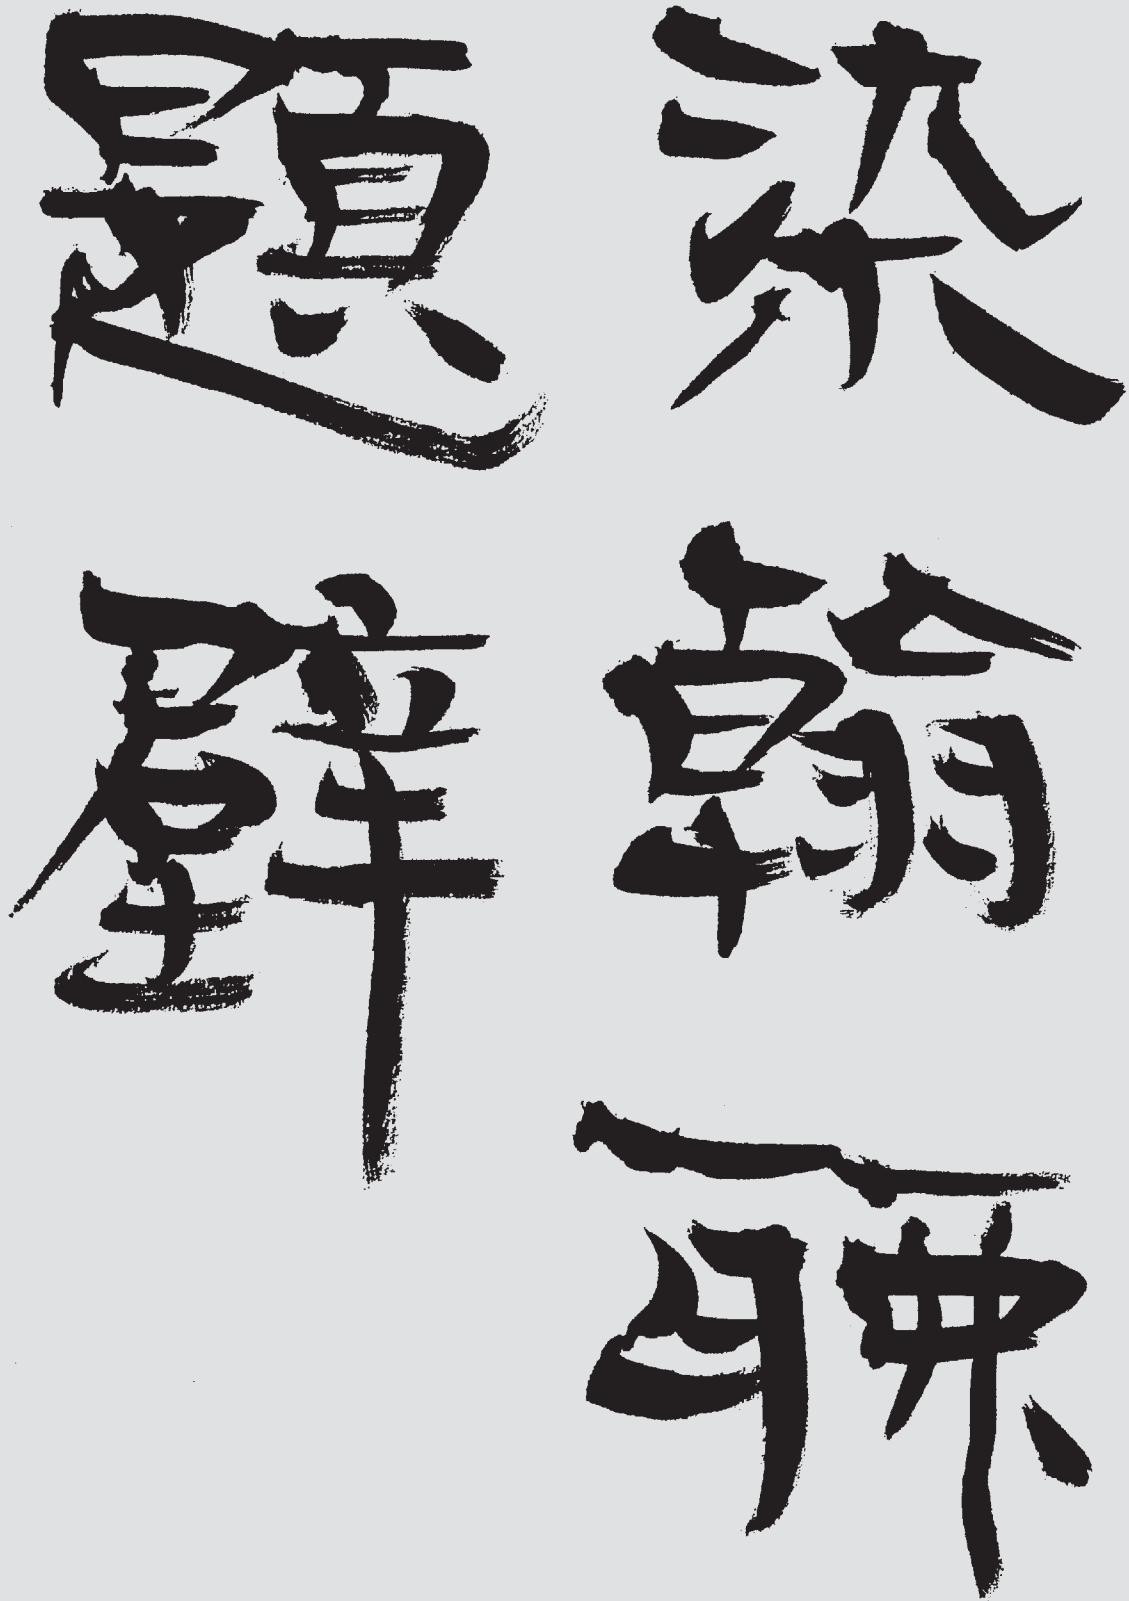 染翰聊
題壁